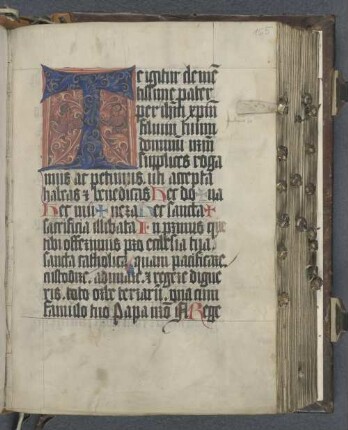 Te igitur cleme
tissime pater
per ihm xpm
filium tuum
dominu nrm
supplices roga
mus ac petimus. uti accepta
habeas ⁊ benedicas hec do✠na
hec mu✠nera hec sancta✠
sacrificia illibata In primis que
tibi offerimus pro ecclesia tua
sancta catholica quam pacificare.
custodire. adunare. ⁊ regere digne
ris. toto orbe terraru. una cum
famulo tuo Papa nro N Rege